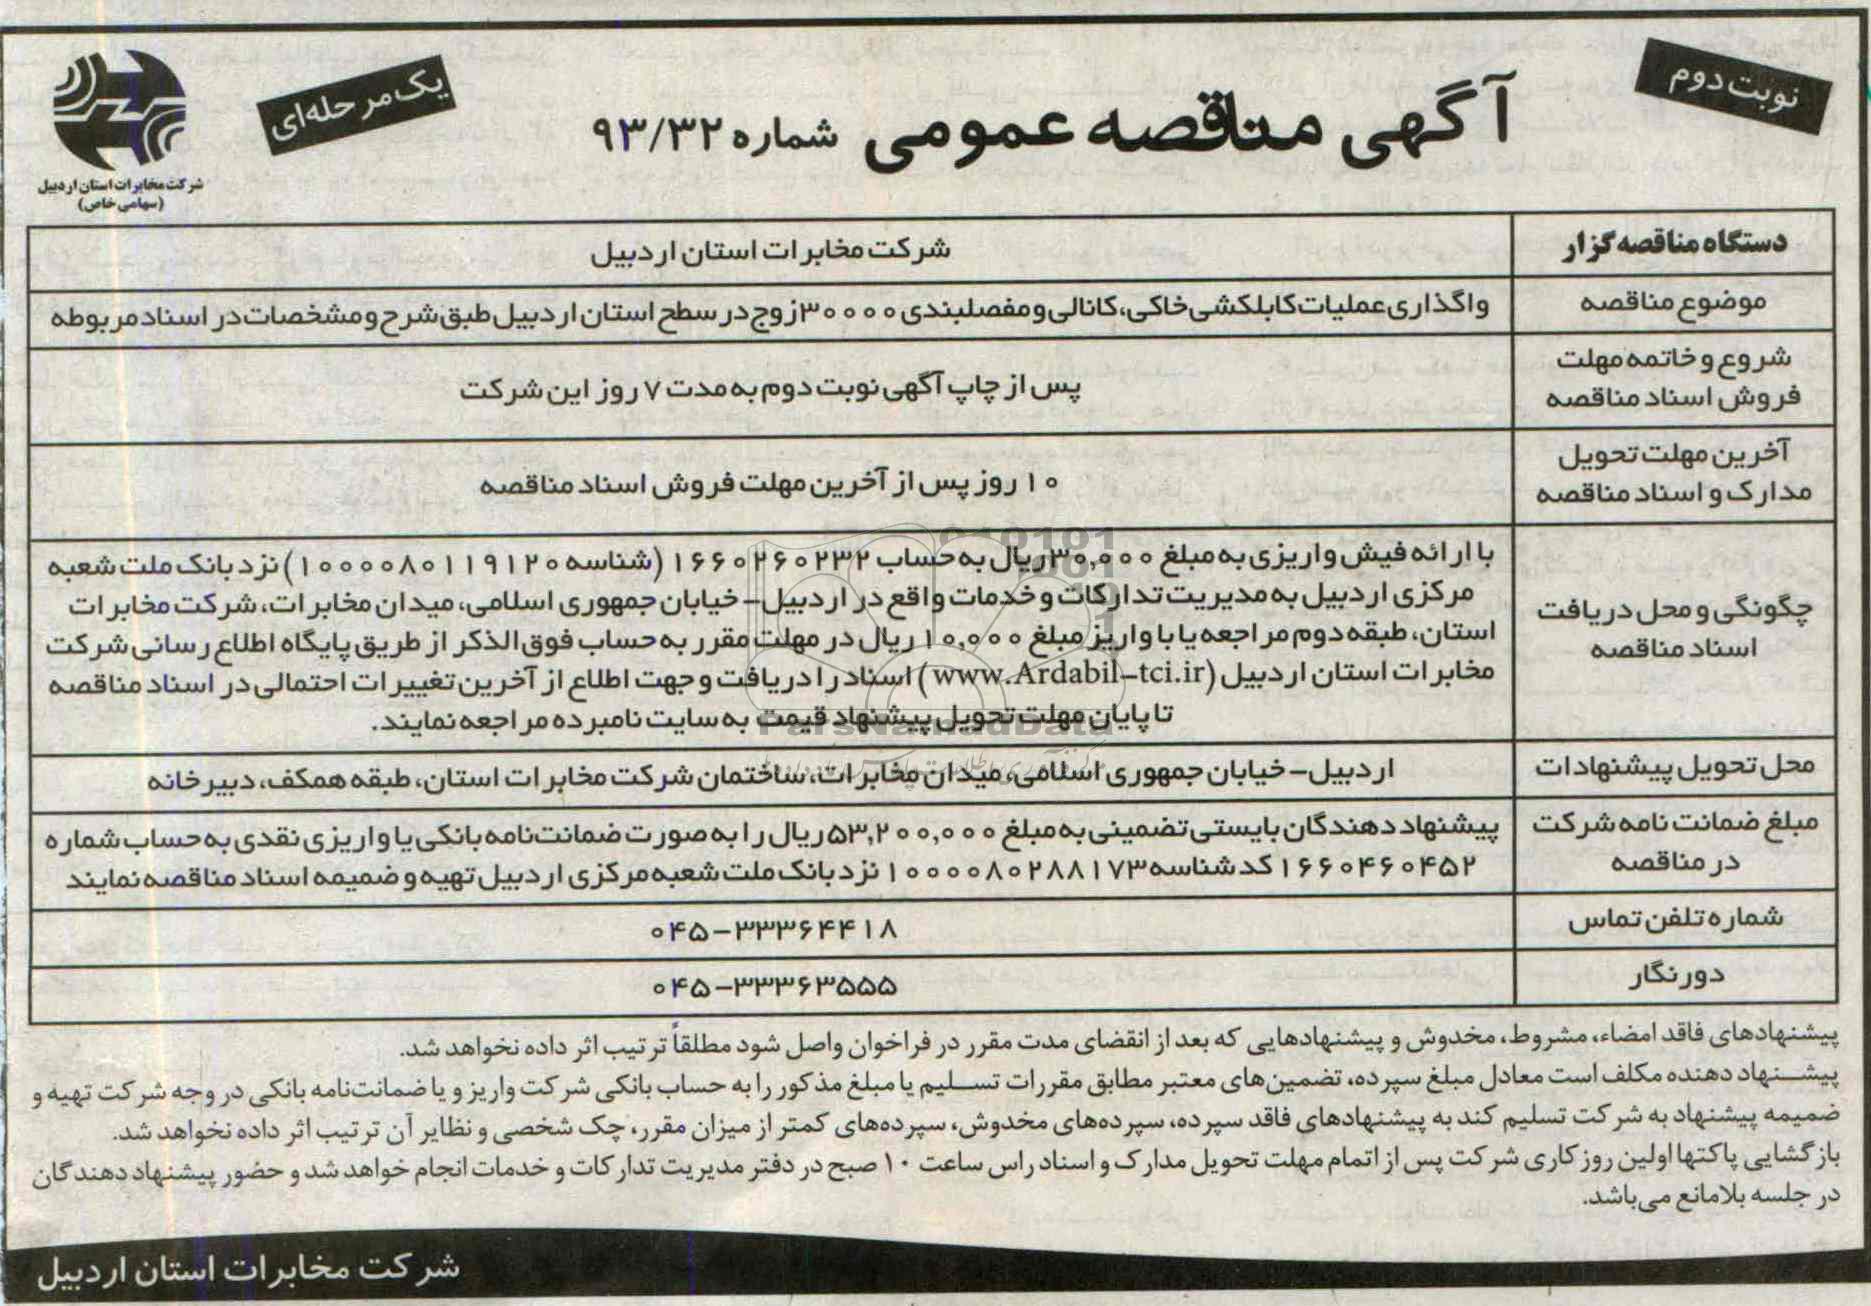 نوبت دوم
آگهی مناقصه عمومی شماره ۹۳/۳۲
یک مرحله‌ای
شرکت مخابرات استان اردبیل
(سهامی خاص)
دستگاه مناقصه گزار
شرکت مخابرات استان اردبیل
موضوع مناقصه
واگذاری عملیات کابلکشی خاکی، کانالی و مفصلبندی ۳۰۰۰۰ زوج در سطح استان اردبیل طبق شرح و مشخصات در اسناد مربوطه
شروع و خاتمه مهلت
فروش اسناد مناقصه
پس از چاپ آگهی نوبت دوم به مدت ۷ روز این شرکت
آخرین مهلت تحویل
مدارک و اسناد مناقصه
۱۰ روز پس از آخرین مهلت فروش اسناد مناقصه
چگونگی و محل دریافت
اسناد مناقصه
با ارائه فیش واریزی به مبلغ ۳۰,۰۰۰ ریال به حساب ۱۶۶۰۲۶۰۲۳۲ (شناسه ۱۰۰۰۰۸۰۱۱۹۱۲۰) نزد بانک ملت شعبه
مرکزی اردبیل به مدیریت تدارکات و خدمات واقع در اردبیل- خیابان جمهوری اسلامی، میدان مخابرات، شرکت مخابرات
استان، طبقه دوم مراجعه یا با واریز مبلغ ۱۰,۰۰۰ ریال در مهلت مقرر به حساب فوق الذکر از طریق پایگاه اطلاع رسانی شرکت
مخابرات استان اردبیل (www.Ardabil-tci.ir) اسناد را دریافت و جهت اطلاع از آخرین تغییرات احتمالی در اسناد مناقصه
تا پایان مهلت تحویل پیشنهاد قیمت به سایت نامبرده مراجعه نمایند.
محل تحویل پیشنهادات
اردبیل- خیابان جمهوری اسلامی، میدان مخابرات، ساختمان شرکت مخابرات استان، طبقه همکف، دبیرخانه
مبلغ ضمانت نامه شرکت
در مناقصه
پیشنهاد دهندگان بایستی تضمینی به مبلغ ۵۳,۲۰۰,۰۰۰ ریال را به صورت ضمانت‌نامه بانکی یا واریزی نقدی به حساب شماره
۱۶۶۰۴۶۰۴۵۲ کد شناسه ۱۰۰۰۰۸۰۲۸۸۱۷۳ نزد بانک ملت شعبه مرکزی اردبیل تهیه و ضمیمه اسناد مناقصه نمایند
شماره تلفن تماس
۰۴۵-۳۳۳۶۴۴۱۸
دورنگار
۰۴۵-۳۳۳۶۳۵۵۵
پیشنهادهای فاقد امضاء، مشروط، مخدوش و پیشنهادهایی که بعد از انقضای مدت مقرر در فراخوان واصل شود مطلقاً ترتیب اثر داده نخواهد شد.
پیشنهاد دهنده مکلف است معادل مبلغ سپرده، تضمین‌های معتبر مطابق مقررات تسلیم یا مبلغ مذکور را به حساب بانکی شرکت واریز و یا ضمانت‌نامه بانکی در وجه شرکت تهیه و
ضمیمه پیشنهاد به شرکت تسلیم کند به پیشنهادهای فاقد سپرده، سپرده‌های مخدوش، سپرده‌های کمتر از میزان مقرر، چک شخصی و نظایر آن ترتیب اثر داده نخواهد شد.
بازگشایی پاکتها اولین روز کاری شرکت پس از اتمام مهلت تحویل مدارک و اسناد راس ساعت ۱۰ صبح در دفتر مدیریت تدارکات و خدمات انجام خواهد شد و حضور پیشنهاد دهندگان
در جلسه بلامانع می‌باشد.
شرکت مخابرات استان اردبیل
ParsNamadData